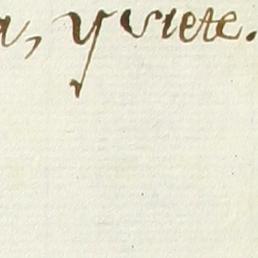 a, y siete.